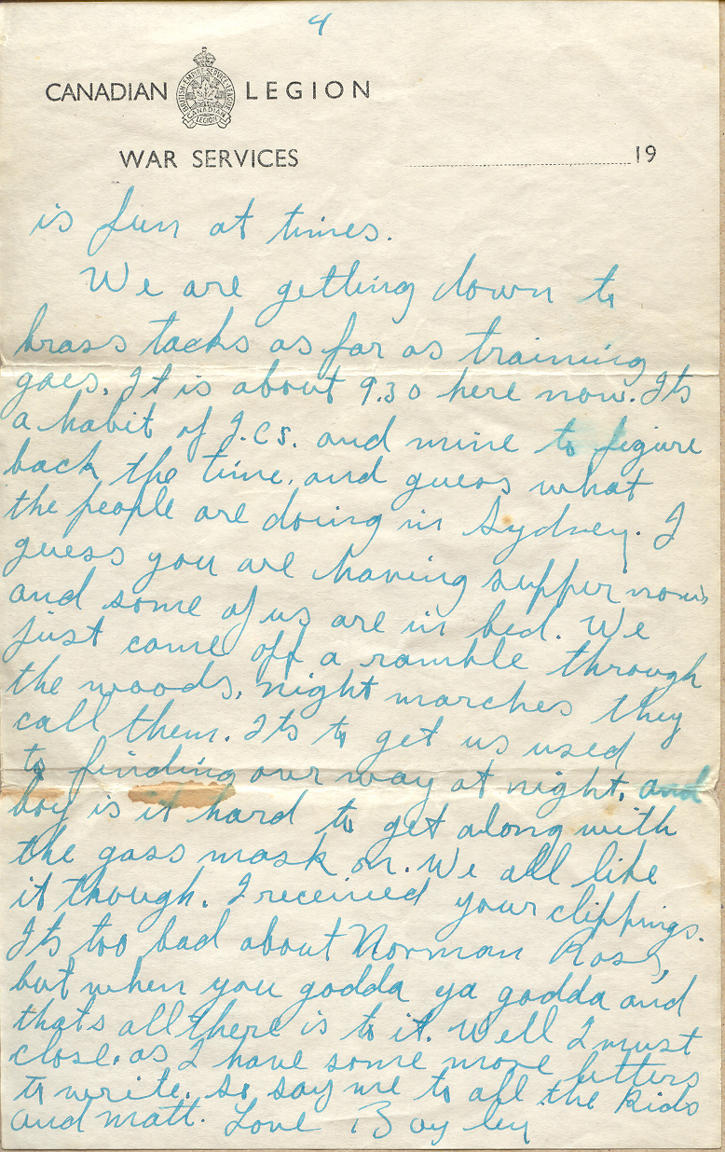 4
CANADIAN LEGION
WAR SERVICES 19
is fun at times.
We are getting down to
brass tacks as far as training
goes. It is about 9.30 here now. Its
a habit of J.C.s. and mine to figure
back the time, and guess what
the people are doing in Sydney. I
guess you are having supper now
and some of us are in bed. We
just came off a ramble through
the woods, night marches they
call them. Its to get us used
to finding our way at night. and
boy is it hard to get along with
the gass mask on. We all like
it though. I received your clippings.
Its too bad about Norman Ross,
but when you godda ya godda and
thats all there is to it. Well I must
close. as I have some more letters
to write. so say me to all the kids
and matt. Love